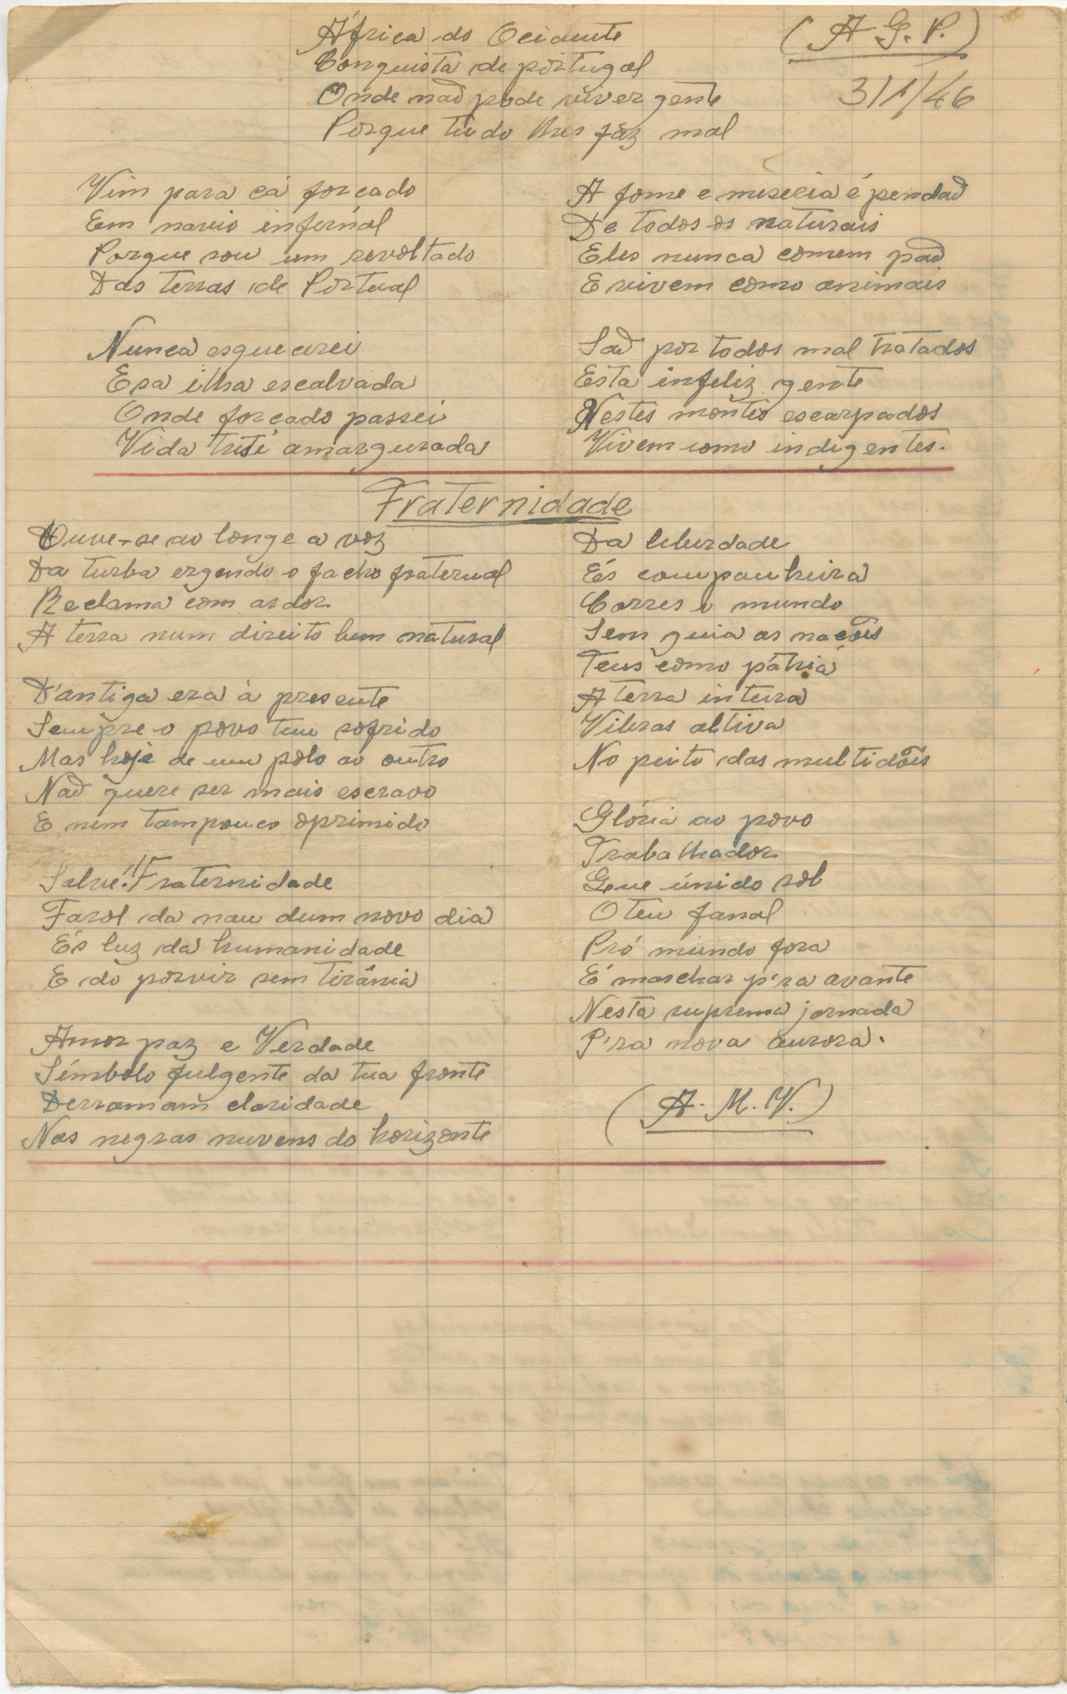 África do Ocidente
Conquista de portugal
Onde naõ pode viver gente
Porque tudo lhes faz mal
(A. G. P.)
3/1/46
Vim para cá forcado
Em navio infernal
Porque sou um revoltado
Das terras de Portual
Nunca esquecerei
Esa ilha escalvada
Onde forcado passei
Vida triste amargurada
A fome e miseria é pendaõ
De todos os naturais
Eles nunca comem paõ
E vivem como animais
Saõ por todos mal tratados
Esta infeliz gente
Nestes montes escarpados
Vivem como indigentes.
Fraternidade
Ouve-se ao longe a voz
Da turba ergendo o facho fraternal
Reclama com ardor
A terra num direito bem natural
D'antiga era á presente
Sempre o povo tem sofrido
Mas hoje de um polo ao outro
Naõ quere ser mais escravo
E nem tampouco oprimido
Salvé!! Fraternidade
Farol da nau dum novo dia
És luz da humanidade
E do porvir sem tirânia
Amor paz e Verdade
Símbolo fulgente da tua fronte
Derramam claridade
Nas negras nuvens do horizonte
Da liberdade
És companheira
Corres o mundo
Sem guia as nacões
Tens como pátria
A terra inteira
Vibras altiva
No peito das multidões
Glória ao povo
Trabalhador
Que únido sob
O teu fanal
Pró mundo fora
É marchar p'ra avante
Nesta suprema jornada
P'ra nova aurora.
(A. M. V.)